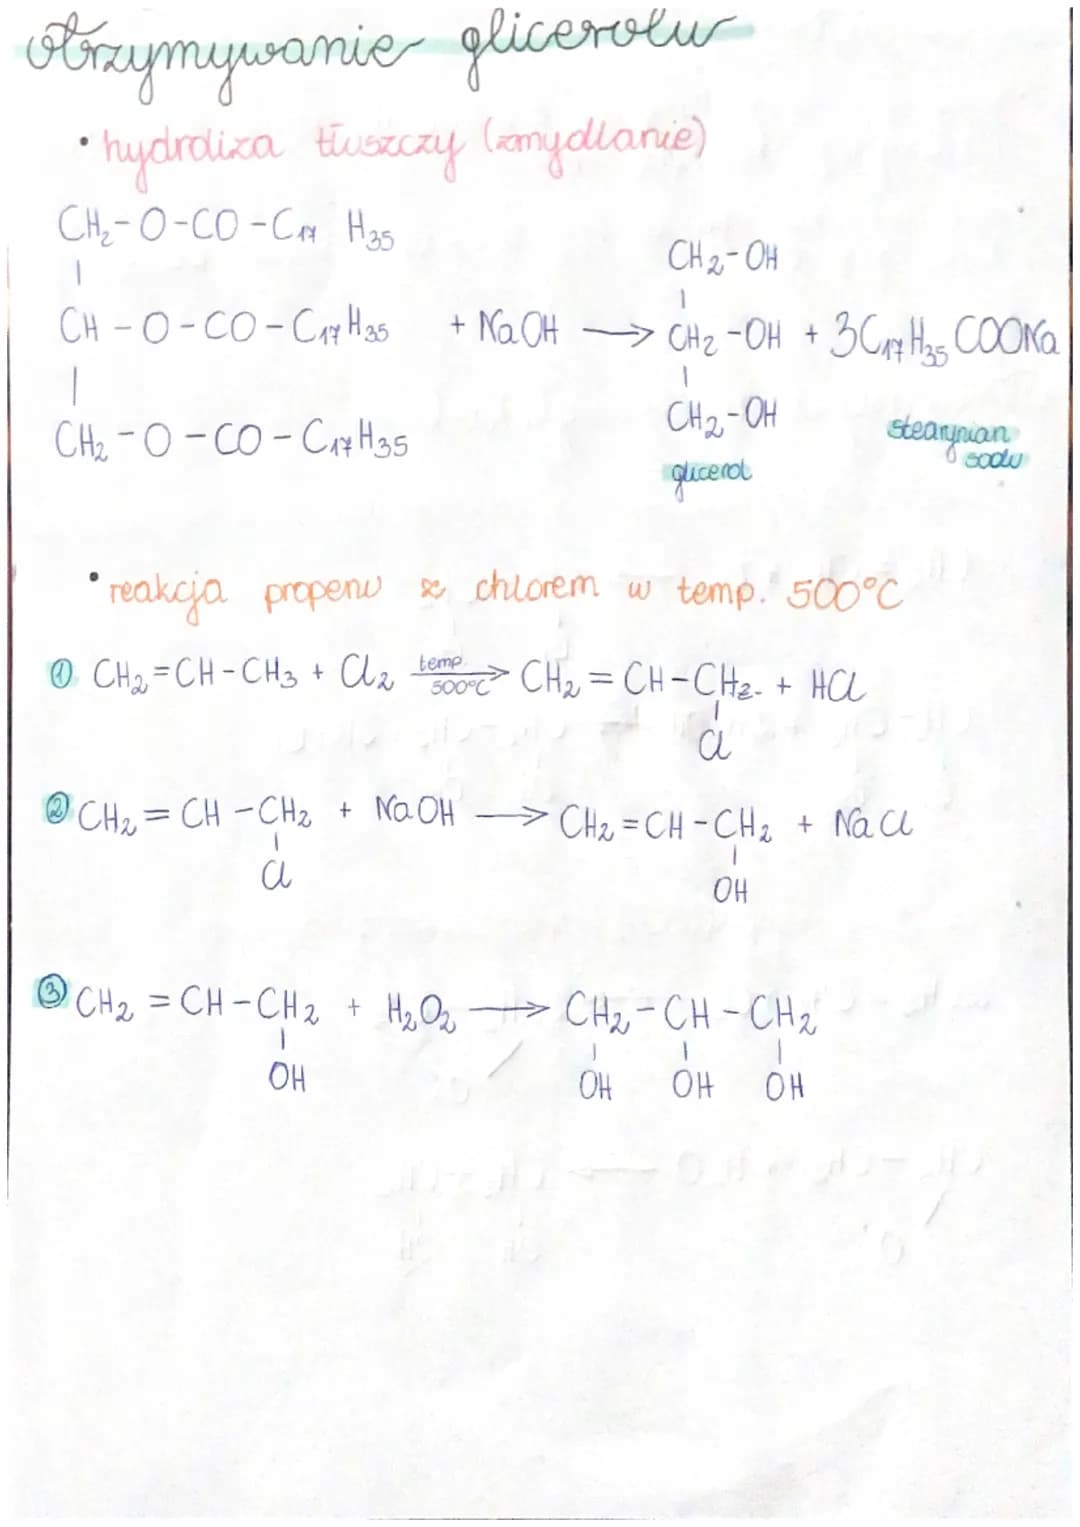 otrzymywanie glicerolu
• hydroliza tłuszczy (zmydlanie)
CH₂-O-CO-C₁₇ H₃₅
|
CH-O-CO-C₁₇H₃₅ + NaOH ⟶ CH₂-OH + 3C₁₇H₃₅COONa
|
CH₂-O-CO-C₁₇H₃₅
CH₂-OH
|
|
CH₂-OH
glicerol
stearynian
sodu
• reakcja propenu z chlorem w temp. 500°C
① CH₂=CH-CH₃ + Cl₂ temp. 500°C ⟶ CH₂=CH-CH₂ + HCl
|
Cl
② CH₂=CH-CH₂ + NaOH ⟶ CH₂=CH-CH₂ + NaCl
| |
Cl OH
③ CH₂=CH-CH₂ + H₂O₂ ⟶ CH₂-CH-CH₂
| | | |
OH OH OH OH